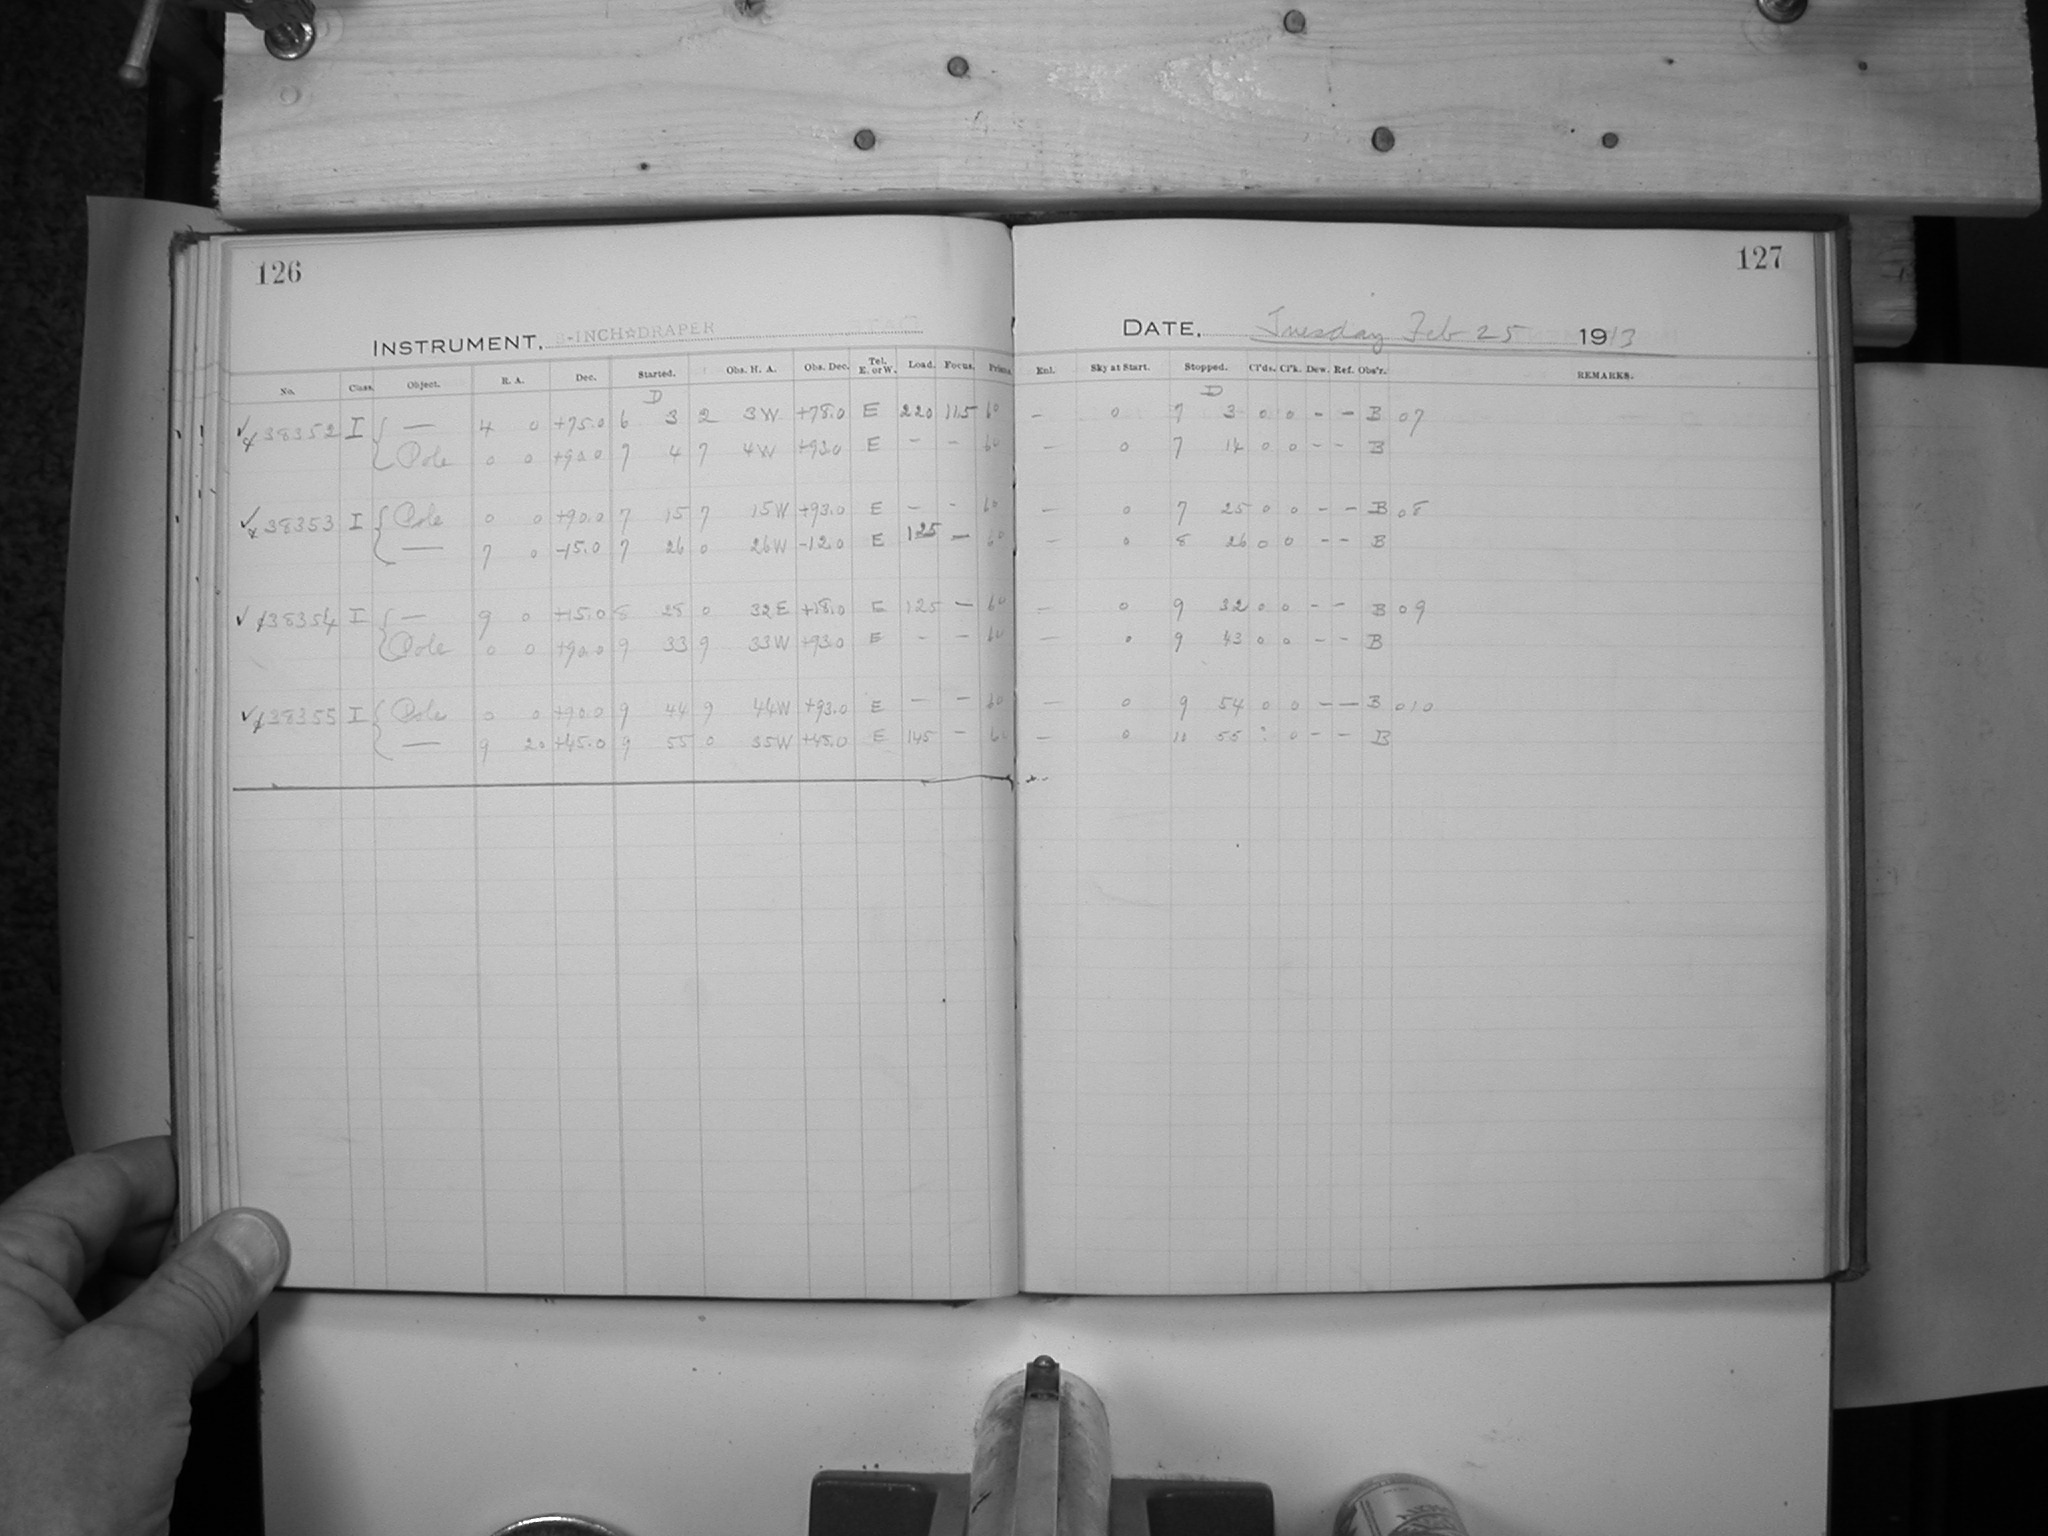 126
INSTRUMENT, 8-INCH☆DRAPER
No. Class. Object. R. A. Dec. Started. Obs. H. A. Obs. Dec. Tel. E. or W. Load. Focus. Prism.
D
38352 I { — 4 0 +75.0 6 3 2 3W +78.0 E 220 11.5 60
Pole 0 0 +90.0 7 4 7 4W +93.0 E – – 60
38353 I { Pole 0 0 +90.0 7 15 7 15W +93.0 E – – 60
— 7 0 -15.0 7 26 0 26W -12.0 E 125 – 60
38354 I { — 9 0 +15.0 8 28 0 32E +18.0 E 125 – 60
Pole 0 0 +90.0 9 33 9 33W +93.0 E – – 60
38355 I { Pole 0 0 +90.0 9 44 9 44W +93.0 E – – 60
— 9 20 +45.0 9 55 0 35W +48.0 E 145 – 60
127
DATE, Tuesday Feb 25 1913
Enl. Sky at Start. Stopped. Cl'ds. Cl'k. Dew. Ref. Obs'r. REMARKS.
D
– 0 7 3 0 0 – – B 07
– 0 7 14 0 0 – – B
– 0 7 25 0 0 – – B 08
– 0 8 26 0 0 – – B
– 0 9 32 0 0 – – B 09
– 0 9 43 0 0 – – B
– 0 9 54 0 0 – – B 010
– 0 10 55 : 0 – – B